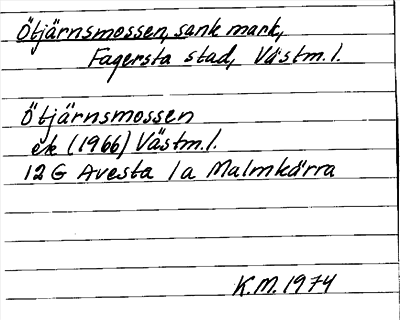 Ötjärnsmossen, sank mark,
Fagersta stad, Västm.l.
Ötjärnsmossen
ek (1966) Västm.l.
12 G Avesta 1a Malmkärra
K.M. 1974